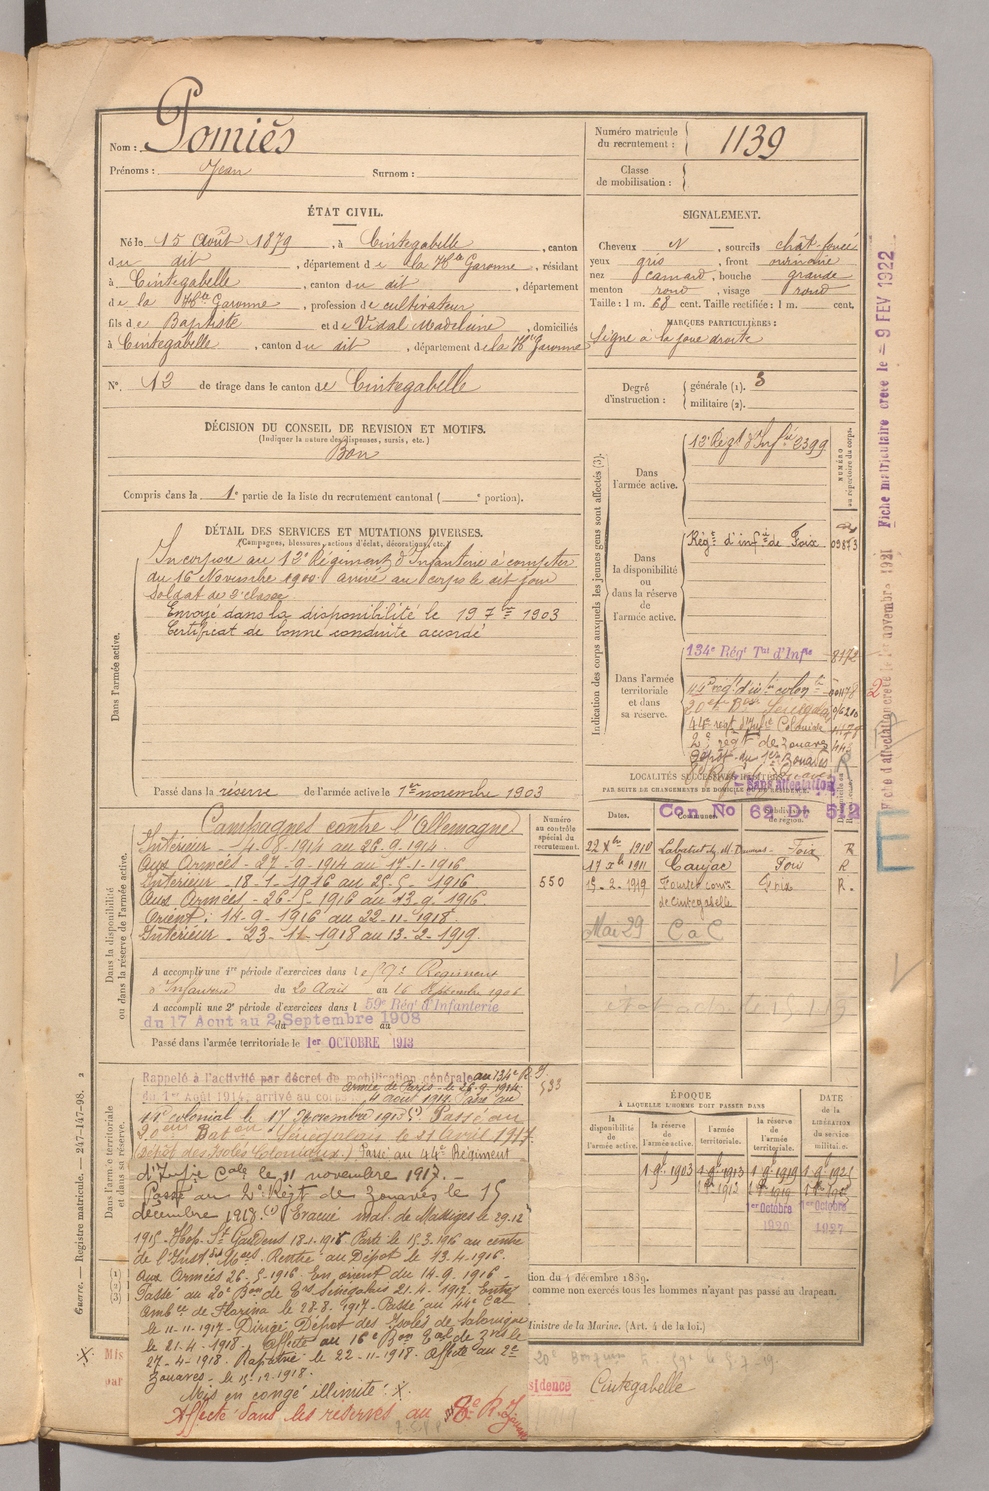 Nom : Pomiés
Prénoms : Jean Surnom :
Numéro matricule du recrutement : 1139
Classe de mobilisation :
ÉTAT CIVIL.
Né le 15 Août 1879, à Cintegabelle, canton
du dit, département de la Hte Garonne, résidant
à Cintegabelle, canton du dit, département
de la Hte Garonne, profession de cultivateur
fils de Baptiste et de Vidal Madeleine, domiciliés
à Cintegabelle, canton du dit, département de la Hte Garonne
N°. 13 de tirage dans le canton de Cintegabelle
SIGNALEMENT.
Cheveux N, sourcils chât-foncé
yeux gris, front ordinaire
nez camard, bouche grande
menton rond, visage rond
Taille : 1 m. 68 cent. Taille rectifiée : 1 m. cent.
MARQUES PARTICULIÈRES :
Signe à la joue droite
Degré d'instruction : générale (1). 3
militaire (2).
DÉCISION DU CONSEIL DE REVISION ET MOTIFS.
(Indiquer la nature des dispenses, sursis, etc.)
Bon
Compris dans la 1e partie de la liste du recrutement cantonal ( e portion).
DÉTAIL DES SERVICES ET MUTATIONS DIVERSES.
(Campagnes, blessures, actions d'éclat, décorations, etc.)
Dans l'armée active.
Incorporé au 12e Régiment d'Infanterie à compter
du 16 Novembre 1900. arrivé au corps le dit jour
Soldat de 2e classe
Envoyé dans la disponibilité le 19 7bre 1903
Certificat de bonne conduite accordé
Passé dans la réserve de l'armée active le 1er novembre 1903
Indication des corps auxquels les jeunes gens sont affectés (3).
NUMÉRO au répertoire du corps.
Dans l'armée active.
12e Régt d'Infie 2399
Dans la disponibilité ou dans la réserve de l'armée active.
Régt d'infie de Foix 09873
Dans l'armée territoriale et dans sa réserve.
134e Régt Tal d'Infie 8172
20e Bon Sénégal
44e régt d'Infie Coloniale
2e régt de Zouaves
Dépôt du 1er Zouaves
Sans affectation
LOCALITÉS SUCCESSIVES HABITÉES
PAR SUITE DE CHANGEMENTS DE DOMICILE OU DE RÉSIDENCE.
Con No 62 Dt 512
Dates. Communes. Subdivisions de région.
22 Xbre 1910 Foix R
17 Xbre 1911 Caujac Foix R
15-2-1919 Foix R.
de Cintegabelle
Mai 29 CaC
Dans la disponibilité ou dans la réserve de l'armée active.
Numéro au contrôle spécial du recrutement.
550
Campagnes contre l'Allemagne
Intérieur - 4-8-1914 au 26-9-1914.
Aux Armées - 27-9-1914 au 17-1-1916
Intérieur - 18-1-1916 au 25-5-1916
Aux Armées - 26-5-1916 au 13-9-1916.
Orient : 14-9-1916 au 22-11-1918
Intérieur - 23-11-1918 au 13-2-1919.
A accompli une 1re période d'exercices dans le 59e Régiment
d'Infanterie du 20 Août au 16 Septembre 1906
A accompli une 2e période d'exercices dans l 59e Régt d'Infanterie
du 17 Aout au 2 Septembre 1908
Passé dans l'armée territoriale le 1er OCTOBRE 1913
Dans l'armée territoriale et dans sa réserve.
Rappelé à l'activité par décret de mobilisation générale au 134e R.I.
Armée de Paris - le 26-9-1914
du 1er Août 1914, arrivé au corps 4 août 1914. Passé au
533
colonial le 17 Novembre 1915 (1). Passé au
20ème Baton Sénégalais le 21 Avril 1917.
(dépôt des Isolés Coloniaux.) Passé au 44e Régiment
d'Infie Cale le 11 novembre 1917. -
Passé au 2e Régt de Zouaves le 15
décembre 1918. (1) Evacué mal. de Massiges le 29-12
1915 - Hop. St Gaudens 18-1-1916. Parti le 15-3-916 au centre
de l'Inst. Rentré au Dépôt le 13-4-1916.
aux Armées 26-5-1916. En orient du 14-9-1916 -
Passé au 20e Bon de Ers Sénégalais 21-4-1917. Entré
Ambce de Florina le 28-8-1917 - Passé au 44e Cal
le 11-11-1917 - Dirigé Dépôt des Isolés de Salonique
le 21-4-1918 - Affecté au 16e Bon
27-4-1918. Rapatrié le 22-11-1918. Affecté au 2e
Zouaves - le 15-12-1918.
Mis en congé illimité : X.
Affecté dans les réserves au 8e R. Zouaves
ÉPOQUE
À LAQUELLE L'HOMME DOIT PASSER DANS
DATE de la LIBÉRATION du service militaire.
la disponibilité de l'armée active.
la réserve de l'armée active.
l'armée territoriale.
la réserve de l'armée territoriale.
1 9bre 1903 1 9bre 1913 1 9bre 1919 1 9bre 1925
1er Octobre 1920
1er Octobre 1927
tion du 4 décembre 1889.
comme non exercés tous les hommes n'ayant pas passé au drapeau.
Ministre de la Marine. (Art. 4 de la loi.)
X. Mis
par
sidence Cintegabelle
Guerre. — Registre matricule. — 247-147-98.
Fiche matriculaire créée le - 9 FEV 1922
Fiche d'affectation créée le 1er novembre 1921